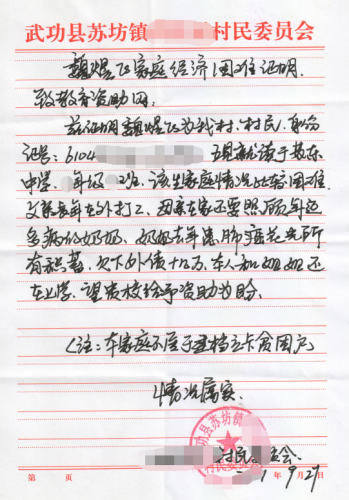 武功县苏坊镇 村民委员会
魏煜飞家庭经济困难证明
致教育资助网:
兹证明魏煜飞为我村村民,身份
证号:6104 现就读于苏东
中学 年级 班。该生家庭情况比较困难,
父亲长年在外打工,母亲在家还要照顾年迈
多病的奶奶,奶奶去年患肺癌花光所
有积蓄,欠下外债十几万,本人和姐姐还
在上学,望贵校给予资助为盼。
(注:本家庭不属于建档立卡贫困户)
情况属实。
武功县苏坊镇
村民委员会
村民委员会
年9月29日
第 页